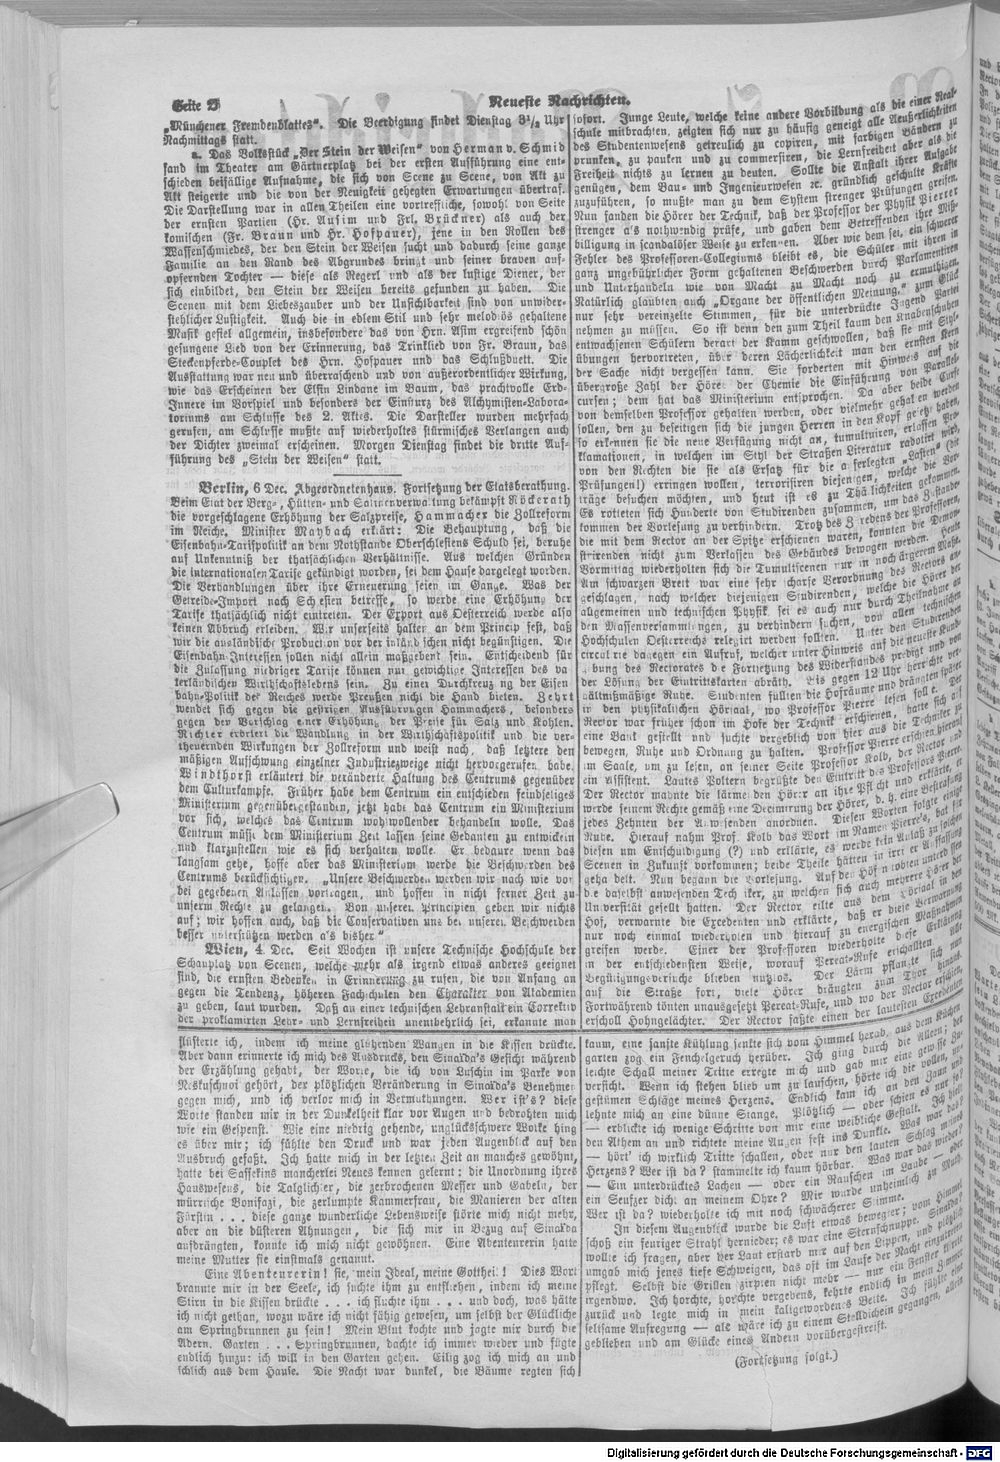 Seite 2
Neueste Nachrichten.
„Münchener Fremdenblattes“. Die Beerdigung findet Dienstag 3½ Uhr
Nachmittags statt.
a. Das Volksstück „Der Stein der Weisen“ von Herman v. Schmid
fand im Theater am Gärtnerplatz bei der ersten Aufführung eine ent-
schieden beifällige Aufnahme, die sich von Scene zu Scene, von Akt zu
Akt steigerte und die von der Neuigkeit gehegten Erwartungen übertraf.
Die Darstellung war in allen Theilen eine vortreffliche, sowohl von Seite
der ernsten Partien (Hr. Ausim und Frl. Brückner) als auch der
komischen (Fr. Braun und Hr. Hofpauer), jene in den Rollen des
Waffenschmiedes, der den Stein der Weisen sucht und dadurch seine ganze
Familie an den Rand des Abgrundes bringt und seiner braven auf-
opfernden Tochter — diese als Regerl und als der lustige Diener, der
sich einbildet, den Stein der Weisen bereits gefunden zu haben. Die
Scenen mit dem Liebeszauber und der Unsichtbarkeit sind von unwider-
stehlicher Lustigkeit. Auch die in edlem Stil und sehr melodiös gehaltene
Musik gefiel allgemein, insbesondere das von Hrn. Asim ergreifend schön
gesungene Lied von der Erinnerung, das Trinklied von Fr. Braun, das
Steckenpferde-Couplet des Hrn. Hofpauer und das Schlußduett. Die
Ausstattung war neu und überraschend und von außerordentlicher Wirkung,
wie das Erscheinen der Elfin Lindane im Baum, das prachtvolle Erd-
Innere im Vorspiel und besonders der Einsturz des Alchymisten-Labora-
toriums am Schlusse des 2. Aktes. Die Darsteller wurden mehrfach
gerufen, am Schlusse mußte auf wiederholtes stürmisches Verlangen auch
der Dichter zweimal erscheinen. Morgen Dienstag findet die dritte Auf-
führung des „Stein der Weisen“ statt.
Berlin, 6 Dec. Abgeordnetenhaus. Fortsetzung der Etatsberathung.
Beim Etat der Berg-, Hütten- und Salinenverwaltung bekämpft Röckerath
die vorgeschlagene Erhöhung der Salzpreise, Hammacher die Zollreform
im Reiche. Minister Maybach erklärt: Die Behauptung, daß die
Eisenbahn-Tarifpolitik an dem Nothstande Oberschlesiens Schuld sei, beruhe
auf Unkenntniß der thatsächlichen Verhältnisse. Aus welchen Gründen
die internationalen Tarife gekündigt worden, sei dem Hause dargelegt worden.
Die Verhandlungen über ihre Erneuerung seien im Gange. Was der
Getreide-Import nach Schlesien betreffe, so werde eine Erhöhung der
Tarife thatsächlich nicht eintreten. Der Export aus Oesterreich werde also
keinen Abbruch erleiden. Wir unserseits halten an dem Princip fest, daß
wir die ausländische Production vor der inländischen nicht begünstigen. Die
Eisenbahn-Interessen sollen nicht allein maßgebend sein. Entscheidend für
die Zulassung niedriger Tarife können nur gewichtige Interessen des va-
terländischen Wirthschaftslebens sein. Zu einer Durchkreuzung der Eisen-
bahn-Politik des Reiches werde Preußen nicht die Hand bieten. Zehrt
wendet sich gegen die gestrigen Ausführungen Hammachers, besonders
gegen den Vorschlag einer Erhöhung der Preise für Salz und Kohlen.
Richter erörtert die Wandlung in der Wirthschaftspolitik und die ver-
theuernden Wirkungen der Zollreform und weist nach, daß letztere den
mäßigen Aufschwung einzelner Industriezweige nicht hervorgerufen habe.
Windthorst erläutert die veränderte Haltung des Centrums gegenüber
dem Culturkampfe. Früher habe dem Centrum ein entschieden feindseliges
Ministerium gegenübergestanden, jetzt habe das Centrum ein Ministerium
vor sich, welches das Centrum wohlwollender behandeln wolle. Das
Centrum müsse dem Ministerium Zeit lassen seine Gedanken zu entwickeln
und klarzustellen wie es sich verhalten wolle. Er bedaure wenn das
langsam gehe, hoffe aber das Ministerium werde die Beschwerden des
Centrums berücksichtigen. „Unsere Beschwerden werden wir nach wie vor
bei gegebenen Anlässen vortragen, und hoffen in nicht ferner Zeit zu
unserm Rechte zu gelangen. Von unseren Principien geben wir nichts
auf; wir hoffen auch, daß die Conservativen uns bei unseren Beschwerden
besser unterstützen werden als bisher“
Wien, 4. Dec. Seit Wochen ist unsere Technische Hochschule der
Schauplatz von Scenen, welche mehr als irgend etwas anderes geeignet
sind, die ernsten Bedenken in Erinnerung zu rufen, die von Anfang an
gegen die Tendenz, höheren Fachschulen den Charakter von Akademien
zu geben, laut wurden. Daß an einer technischen Lehranstalt ein Correktiv
der proklamirten Lehr- und Lernfreiheit unentbehrlich sei, erkannte man
sofort. Junge Leute, welche keine andere Vorbildung als die einer Real-
schule mitbrachten, zeigten sich nur zu häufig geneigt alle Aeußerlichkeiten
des Studentenwesens getreulich zu copiren, mit farbigen Bändern zu
prunken, zu pauken und zu commersiren, die Lernfreiheit aber als die
Freiheit nichts zu lernen zu deuten. Sollte die Anstalt ihrer Aufgabe
genügen, dem Bau- und Ingenieurwesen ꝛc. gründlich geschulte Kräfte
zuzuführen, so mußte man zu dem System strenger Prüfungen greifen.
Nun fanden die Hörer der Technik, daß der Professor der Physik Pierre
strenger als nothwendig prüfe, und gaben dem Betreffenden ihre Miß-
billigung in scandalöser Weise zu erkennen. Aber wie dem sei, ein schwerer
Fehler des Professoren-Collegiums bleibt es, die Schüler mit ihren in
ganz ungebührlicher Form gehaltenen Beschwerden durch Parlamentiren
und Unterhandeln wie von Macht zu Macht noch zu ermuthigen.
Natürlich glaubten auch „Organe der öffentlichen Meinung,“ zum Glück
nur sehr vereinzelte Stimmen, für die unterdrückte Jugend Partei
nehmen zu müssen. So ist denn den zum Theil kaum den Knabenschuhen
entwachsenen Schülern derart der Kamm geschwollen, daß sie mit Styl-
übungen hervortreten, über deren Lächerlichkeit man den ernsten Kern
der Sache nicht vergessen kann. Sie forderten mit Hinweis auf die
übergroße Zahl der Hörer der Chemie die Einführung von Parallel-
cursen; dem hat das Ministerium entsprochen. Da aber beide Curse
von demselben Professor gehalten werden, oder vielmehr gehalten werden
sollen, den zu beseitigen sich die jungen Herren in den Kopf gesetzt haben,
so erkennen sie die neue Verfügung nicht an, tumultuiren, erlassen Pro-
klamationen, in welchen im Styl der Straßen Literatur radotirt wird,
von den Rechten die sie als Ersatz für die auferlegten „Lasten“ (die
Prüfungen!) erringen wollen, terrorisiren diejenigen, welche die Vor-
träge besuchen möchten, und heut ist es zu Thätlichkeiten gekommen.
Es rotteten sich Hunderte von Studirenden zusammen, um das Zustande-
kommen der Vorlesung zu verhindern. Trotz des Zuredens der Professoren,
die mit dem Rector an der Spitze erschienen waren, konnten die Demon-
strirenden nicht zum Verlassen des Gebäudes bewogen werden. Heute
Vormittag wiederholten sich die Tumultscenen nur in noch ärgerem Maße.
Am schwarzen Brett war eine sehr scharfe Verordnung des Rectors an-
geschlagen, nach welcher diejenigen Studirenden, welche die Hörer der
allgemeinen und technischen Physik, sei es auch nur durch Theilnahme an
den Massenversammlungen, zu verhindern suchen, von allen technischen
Hochschulen Oesterreichs relegirt werden sollten. Unter den Studirenden
circulirte dagegen ein Aufruf, welcher unter Hinweis auf die neueste Kund-
gebung des Rectorates die Fortsetzung des Widerstandes predigt und von
der Lösung der Eintrittskarten abräth. Bis gegen 12 Uhr herrschte ver-
hältnißmäßige Ruhe. Studenten füllten die Hofräume und drängten später
in den physikalischen Hörsaal, wo Professor Pierre lesen sollte. Der
Rector war früher schon im Hofe der Technik erschienen, hatte sich auf
eine Bank gestellt und suchte vergeblich von hier aus die Techniker zu
bewegen, Ruhe und Ordnung zu halten. Professor Pierre erschien hierauf
im Saale, um zu lesen, an seiner Seite Professor Kolb, der Rector und
ein Assistent. Lautes Poltern begrüßte den Eintritt des Professors Pierre.
Der Rector mahnte die lärmenden Hörer an ihre Pflicht und erklärte, er
werde seinem Rechte gemäß eine Decimirung der Hörer, d. h. eine Bestrafung
jedes Zehnten der Anwesenden anordnen. Diesen Worten folgte einige
Ruhe. Hierauf nahm Prof. Kolb das Wort im Namen Pierre's, bat für
diesen um Entschuldigung (?) und erklärte, es werde kein Anlaß zu solchen
Scenen in Zukunft vorkommen; beide Theile hätten in irriger Auffassung
gehandelt. Nun begann die Vorlesung. Auf den Höfen tobten unterdessen
die daselbst anwesenden Techniker, zu welchen sich auch mehrere Hörer der
Universität gesellt hatten. Der Rector eilte aus dem Hörsaal in den
Hof, verwarnte die Excedenten und erklärte, daß er diese Verwarnung
nur noch einmal wiederholen und hierauf zu energischen Maßnahmen
greifen werde. Einer der Professoren wiederholte diese Erklärung
in der entschiedensten Weise, worauf Pereat-Rufe erschallten. Alle
Begütigungsversuche blieben nutzlos. Der Lärm pflanzte sich nun
auf die Straße fort, viele Hörer drängten zum Thor hinaus.
Fortwährend tönten unausgesetzt Pereat-Rufe, und wo der Rector erschien,
erscholl Hohngelächter. Der Rector faßte einen der lautesten Excedenten
flüsterte ich, indem ich meine glühenden Wangen in die Kissen drückte.
Aber dann erinnerte ich mich des Ausdrucks, den Sinaïda's Gesicht während
der Erzählung gehabt, der Worte, die ich von Luschin im Parke von
Neskuschnoi gehört, der plötzlichen Veränderung in Sinaïda's Benehmen
gegen mich, und ich verlor mich in Vermuthungen. Wer ist's? diese
Worte standen mir in der Dunkelheit klar vor Augen und bedrohten mich
wie ein Gespenst. Wie eine niedrig gehende, unglücksschwere Wolke hing
es über mir; ich fühlte den Druck und war jeden Augenblick auf den
Ausbruch gefaßt. Ich hatte mich in der letzten Zeit an manches gewöhnt,
hatte bei Sassekins mancherlei Neues kennen gelernt; die Unordnung ihres
Hauswesens, die Talglichter, die zerbrochenen Messer und Gabeln, der
mürrische Bonifazi, die zerlumpte Kammerfrau, die Manieren der alten
Fürstin . . . diese ganze wunderliche Lebensweise störte mich nicht mehr,
aber an die düsteren Ahnungen, die sich mir in Bezug auf Sinaïda
aufdrängten, konnte ich mich nicht gewöhnen. Eine Abenteurerin hatte
meine Mutter sie einstmals genannt.
Eine Abenteurerin! sie, mein Ideal, meine Gottheit! Dies Wort
brannte mir in der Seele, ich suchte ihm zu entfliehen, indem ich meine
Stirn in die Kissen drückte . . . ich fluchte ihm . . . und doch, was hätte
ich nicht gethan, wozu wäre ich nicht fähig gewesen, um selbst der Glückliche
am Springbrunnen zu sein! Mein Blut kochte und jagte mir durch die
Adern. Garten . . . Springbrunnen, dachte ich immer wieder und fügte
endlich hinzu: ich will in den Garten gehen. Eilig zog ich mich an und
schlich aus dem Hause. Die Nacht war dunkel, die Bäume regten sich
kaum, eine sanfte Kühlung senkte sich vom Himmel herab, aus dem Küchen-
garten zog ein Fenchelgeruch herüber. Ich ging durch die Alleen; der
leichte Schall meiner Tritte erregte mich und gab mir eine gewisse Zu-
versicht. Wenn ich stehen blieb um zu lauschen, hörte ich die vollen, un-
gestümen Schläge meines Herzens. Endlich kam ich an den Zaun und
lehnte mich an eine dünne Stange. Plötzlich — oder schien es nur so?
— erblickte ich wenige Schritte von mir eine weibliche Gestalt. Ich hielt
den Athem an und richtete meine Augen fest ins Dunkle. Was war das?
— hört' ich wirklich Tritte schallen, oder nur den lauten Schlag meines
Herzens? Wer ist da? stammelte ich kaum hörbar. Was war das wieder?
— Ein unterdrücktes Lachen — oder ein Rauschen im Laube — oder
ein Seufzer dicht an meinem Ohre? Mir wurde unheimlich zu Muth.
Wer ist da? wiederholte ich mit noch schwächerer Stimme.
In diesem Augenblick wurde die Luft etwas bewegter; vom Himmel
schoß ein feuriger Strahl hernieder; es war eine Sternschnuppe. Sinaïda?
wollte ich fragen, aber der Laut erstarb mir auf den Lippen, und plötzlich
umgab mich jenes tiefe Schweigen, das oft im Laufe der Nacht einzutreten
pflegt. Selbst die Grillen zirpten nicht mehr — nur ein Fenster klirrte
irgendwo. Ich horchte, horchte vergebens, kehrte endlich in mein Zimmer
zurück und legte mich in mein kaltgewordenes Bette. Ich fühlte eine
seltsame Aufregung — als wäre ich zu einem Stelldichein gegangen, allein
geblieben und am Glücke eines Andern vorübergestreift.
(Fortsetzung folgt.)
Digitalisierung gefördert durch die Deutsche Forschungsgemeinschaft - DFG